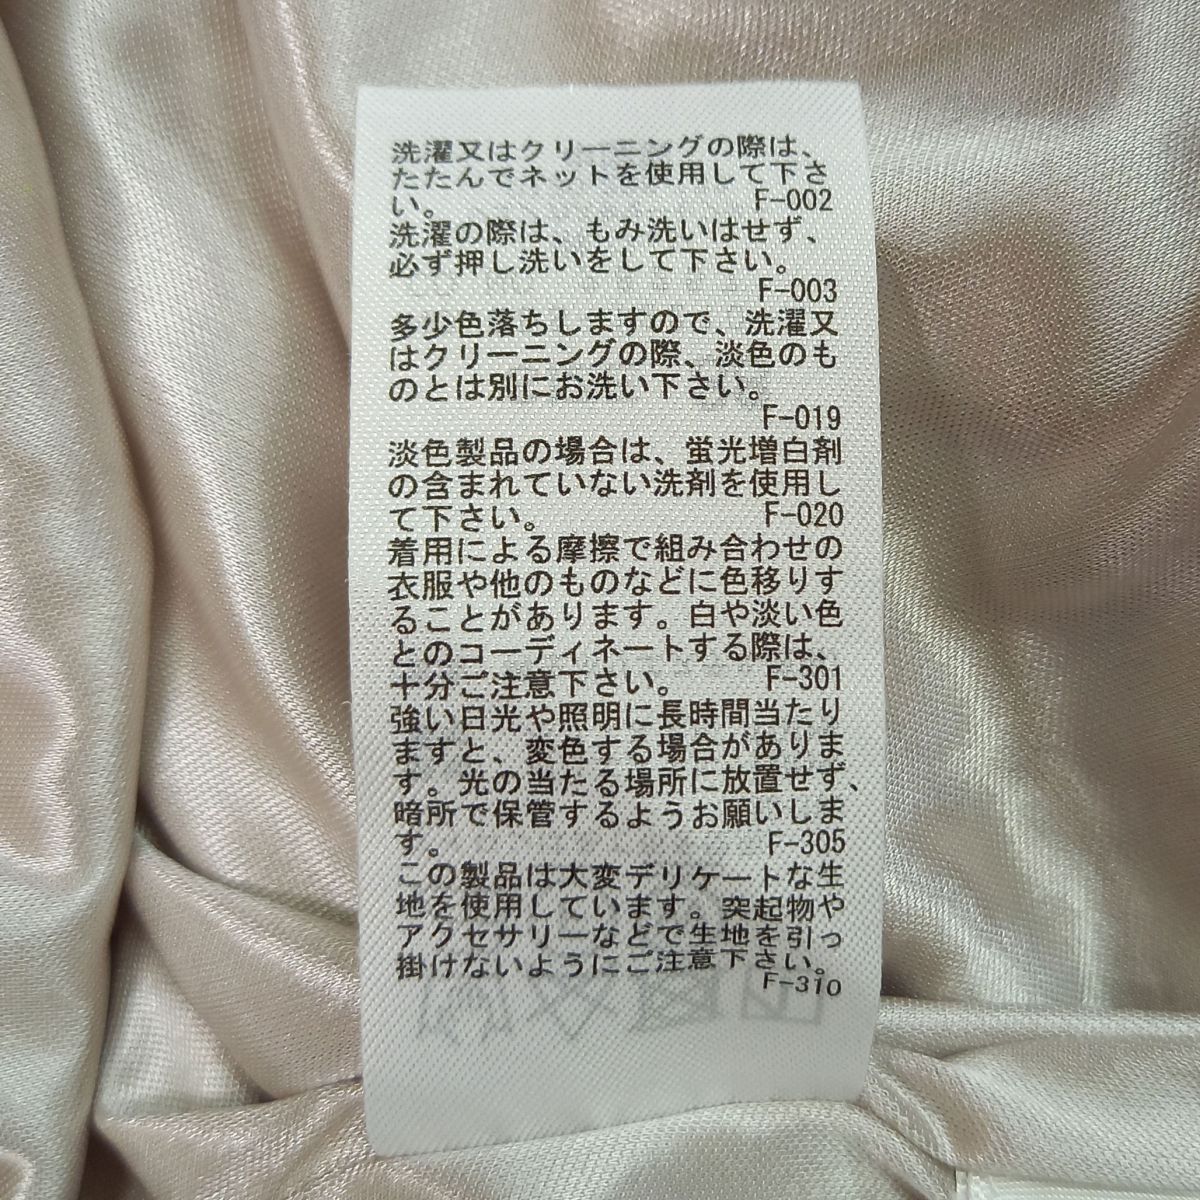 洗濯又はクリーニングの際は、
たたんでネットを使用して下さ
い。 F-002
洗濯の際は、もみ洗いはせず、
必ず押し洗いをして下さい。
F-003
多少色落ちしますので、洗濯又
はクリーニングの際、淡色のも
のとは別にお洗い下さい。
F-019
淡色製品の場合は、蛍光増白剤
の含まれていない洗剤を使用し
て下さい。 F-020
着用による摩擦で組み合わせの
衣服や他のものなどに色移りす
ることがあります。白や淡い色
とのコーディネートする際は、
十分ご注意下さい。 F-301
強い日光や照明に長時間当たり
ますと、変色する場合がありま
す。光の当たる場所に放置せず、
暗所で保管するようお願いしま
す。 F-305
この製品は大変デリケートな生
地を使用しています。突起物や
アクセサリーなどで生地を引っ
掛けないようにご注意下さい。
F-310